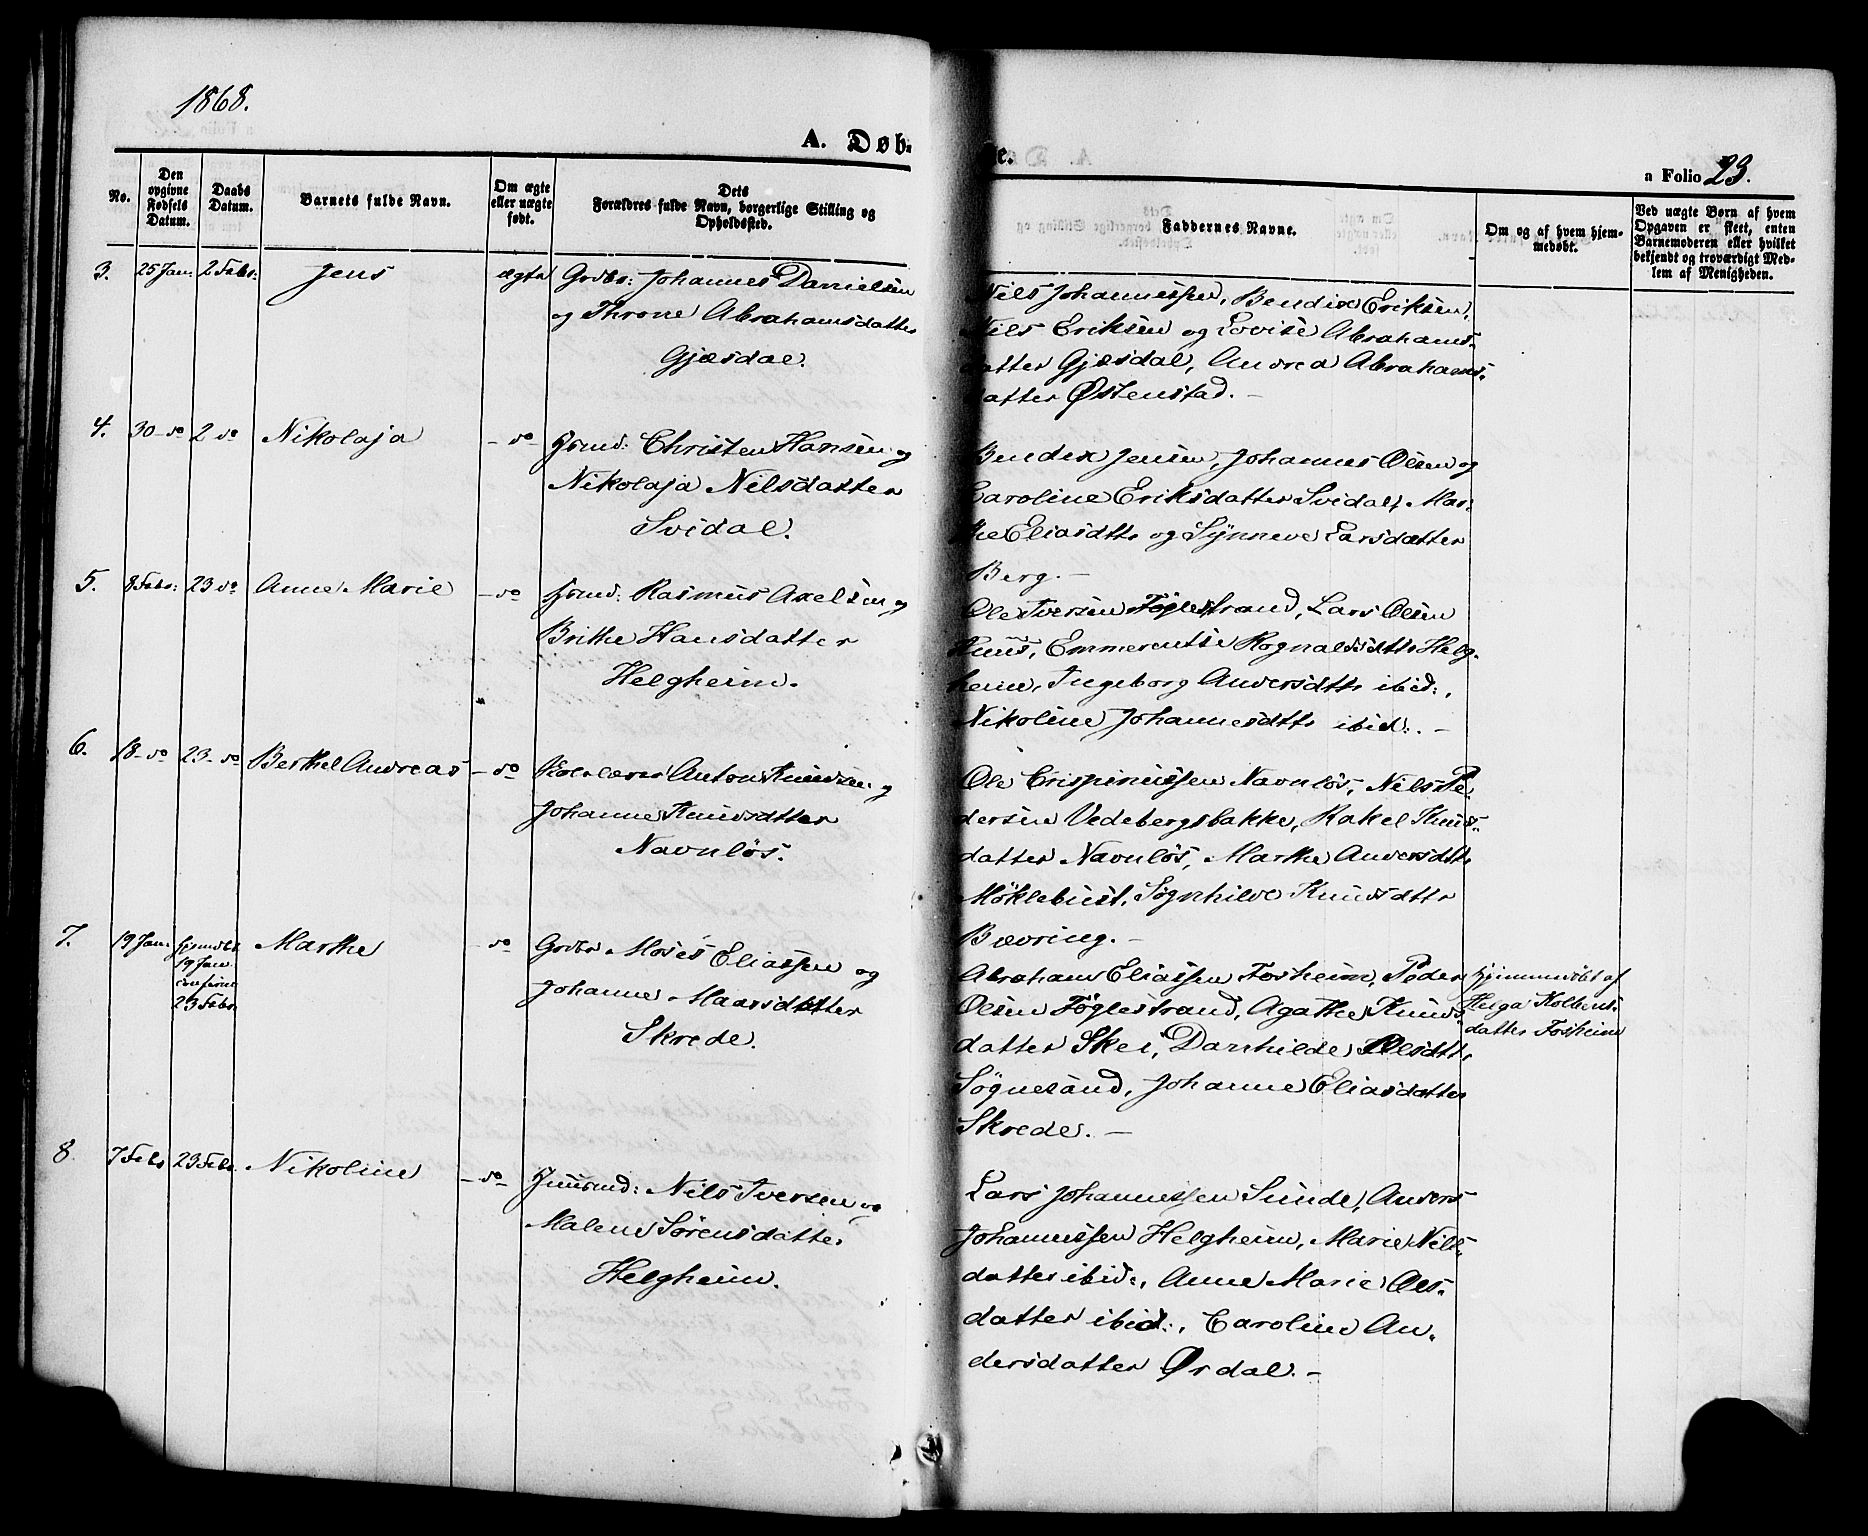 1868.
A. Døb-
te.
a Folio 23.
No.
Den opgivne Fødsels Datum.
Daabs Datum.
Barnets fulde Navn.
Om ægte eller uægte født.
Dets Forældres fulde Navn, borgerlige Stilling og Opholdssted.
Faddernes Navne.
Om og af hvem hjem-
medøbt.
Ved uægte Børn af hvem
Opgaven er skeet, enten
Barnemoderen eller hvilket
bekjendt og troværdigt Med-
lem af Menigheden.
3. 25 Jan: 2 Febr: Jens ægte Grdbr: Johannes Danielsen
og Throne Abrahamsdatter
Gjæsdal.
Nils Johannessen, Bendix Eriksen,
Nils Eriksen og Lovise Abrahams-
datter Gjæsdal, Andrea Abrahams-
datter Østenstad. –
4. 30 – do 2 do Nikolaja – do Christen Hansen og
Nikolaja Nilsdatter
Svidal.
Bendix Jensen, Johannes Olsen og
Caroline Eriksdatter Svidal, Mar-
the Eliasdtr og Synneve Larsdatter
Berg. –
5. 8 Febr: 23 do Anne Marie – do Rasmus Axelsen og
Brithe Hansdatter
Helgheim.
Ole Iversen Føglestrand, Lars Olsen
Kuus, Emmerentse Rognaldsdtr Helg-
heim, Ingeborg Andersdtr ibid:,
Nikoline Johannesdtr ibid:. –
6. 18 – do 23 – do Berthel Andreas – do Anton Knudsen og
Johanne Knudsdatter
Navnløs.
Ole Crispinussen Navnløs, Nils Pe-
dersen Vedebergsbakke, Rakel Knuds-
datter Navnløs, Marthe Andersdtr
Møklebust, Søgnhilde Knudsdtr
Bævring. –
7. 19 Jan: hjemdbt.
19 Jan.
23 Febr. Marthe – do Grdbr Moses Eliassen og
Johanne Maarsdatter
Skrede.
Abraham Eliassen Fosheim, Peder
Olsen Føglestrand, Agathe Knuds-
datter Skei, Danhilde Olsdtr
Søgnesand, Johanne Eliasdatter
Skrede. –
hjemmedøbt af
Helga Kolbens-
datter Fosheim
8. 7 Febr 23 Febr. Nikoline – do Nils Iversen og
Malene Sørensdatter
Helgheim.
Lars Johannessen Sunde, Anders
Johannessen Helgheim, Marie Nils-
datter ibid:, Anne Marie Ols-
datter ibid:, Caroline An-
dersdatter Ørdal. –